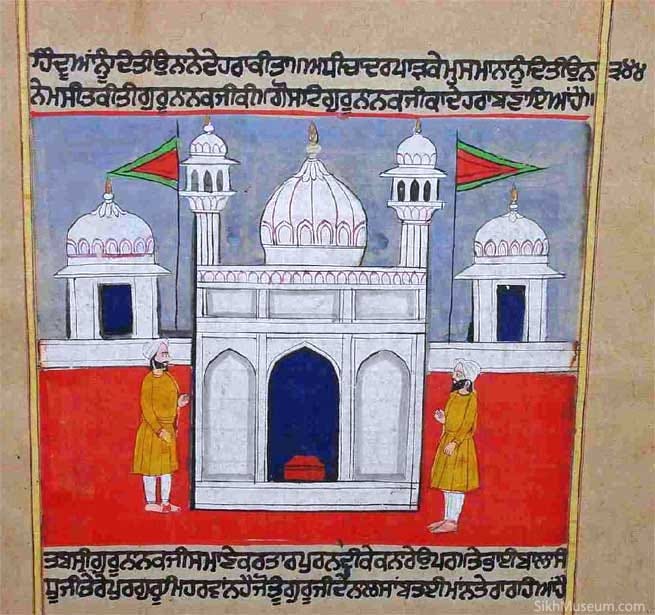 ਹਿੰਦੂਆਂਨੂੰਦਿਤੀਉਨਨੇਦੇਹਰਾਕੀਤਾ॥ਅਧੀਚਾਦਰਪਾੜਕੇਮੁਸਮਾਨਨੂੰਦਿਤੀਉਨ
ਨੇਮਸੀਤਕੀਤੀਗੁਰੂਨਨਕਜੀਕੀ॥ਗੋਸਾਇਗੁਰੂਨਨਕਜੀਕਾਦੇਹਰਾਬਣਾਇਆਂਹੈ॥
ਤਬਸ੍ਰੀਗੁਰੂਨਨਕਜੀਸਮਾਣੇਕਰਤਾਰਪੁਰਨਦੀਕੇਕਨਰੇਉਪਰਅਤੇਭਾਈਬਾਲੇਸੰ
ਧੂਜੀਤੇਰੇਪੁਰਗੁਰੂਮਿਹਰਵਾਂਨਹੈਜੋਤੂੰਗੁਰੂਜੀਦੇਨਲਸਾਂਬਤਈਮਾਂਨਤੇਰਾਰਹਿਆਂਹੈ
SikhMuseum.com